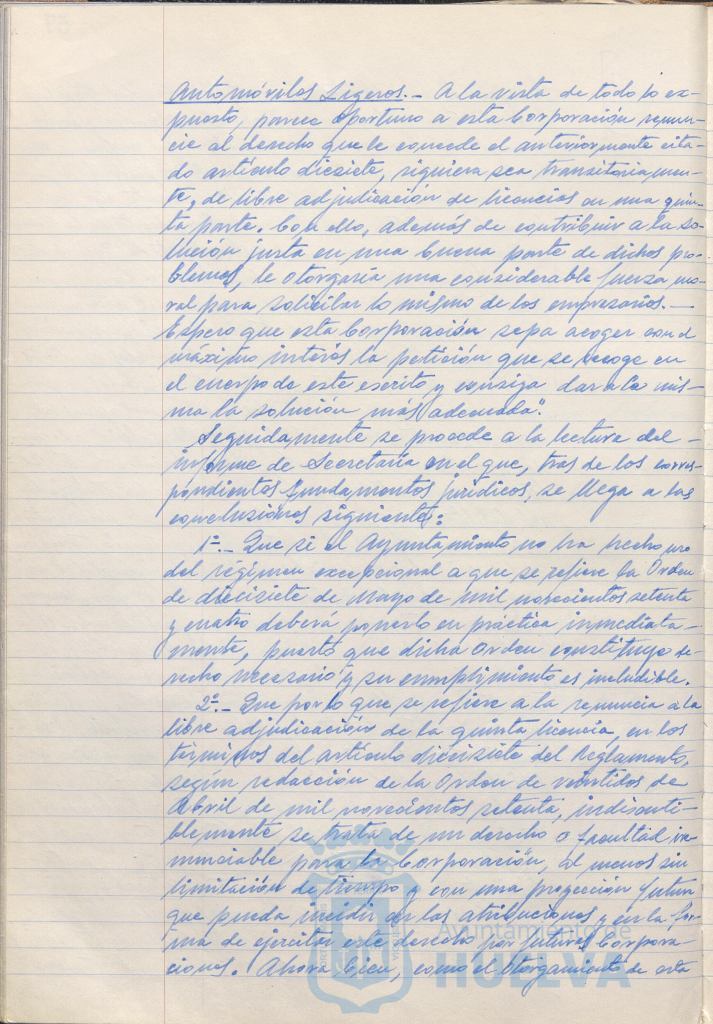 Automóviles Ligeros.- A la vista de todo lo ex-
puesto, parece oportuno a esta Corporación renun-
cie al derecho que le concede el anteriormente cita-
do artículo diesiete, siquiera sea transitoriamen-
te, de libre adjudicación de licencias en una quin-
ta parte. Con ello, además de contribuir a la so-
lución justa en una buena parte de dichos pro-
blemas, le otorgaría una considerable fuerza mo-
ral para solicitar lo mismo de los empresarios.-
Espero que esta Corporación sepa acoger con el
máximo interés la petición que se recoge en
el cuerpo de este escrito y consiga dar a la mis-
ma la solución más adecuada".
Seguidamente se procede a la lectura del -
informe de Secretaría en el que, tras de los corres-
pondientes fundamentos jurídicos, se llega a las
conclusiones siguientes:
1º.- Que si el Ayuntamiento no ha hecho uso
del régimen excepcional a que se refiere la Orden
de diecisiete de Mayo de mil novecientos setenta
y cuatro deberá ponerlo en práctica inmediata-
mente, puesto que dicha Orden constituye de-
recho necesario y su cumplimiento es ineludible.
2º.- Que por lo que se refiere a la renuncia a la
libre adjudicación de la quinta licencia, en los
términos del artículo diecisiete del Reglamento,
según redacción de la Orden de veintidos de
Abril de mil novecientos setenta, indiscuti-
blemente se trata de un derecho o facultad irre-
nunciable para la Corporación, al menos sin
limitación de tiempo y con una proyección futura
que pueda incidir en las atribuciones y en la for-
ma de ejercitar este derecho por futuras Corpora-
ciones. Ahora bien, como el otorgamiento de esta
Ayuntamiento de
HUELVA